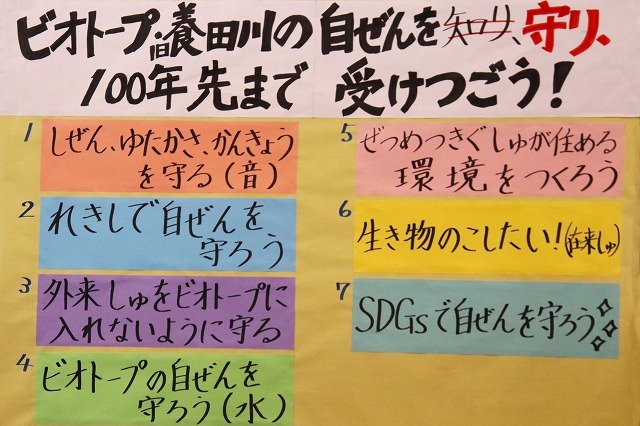 ビオトープ旧養田川の自ぜんを知り、守り、
100年先まで受けつごう!
1
しぜん、ゆたかさ、かんきょう
を守る(音)
2
れきしで自ぜんを
守ろう
3
外来しゅをビオトープに
入れないように守る
4
ビオトープの自ぜんを
守ろう(水)
5
ぜつめつきぐしゅが住める
環境をつくろう
6
生き物のこしたい!(在来しゅ)
7
SDGsで自ぜんを守ろう